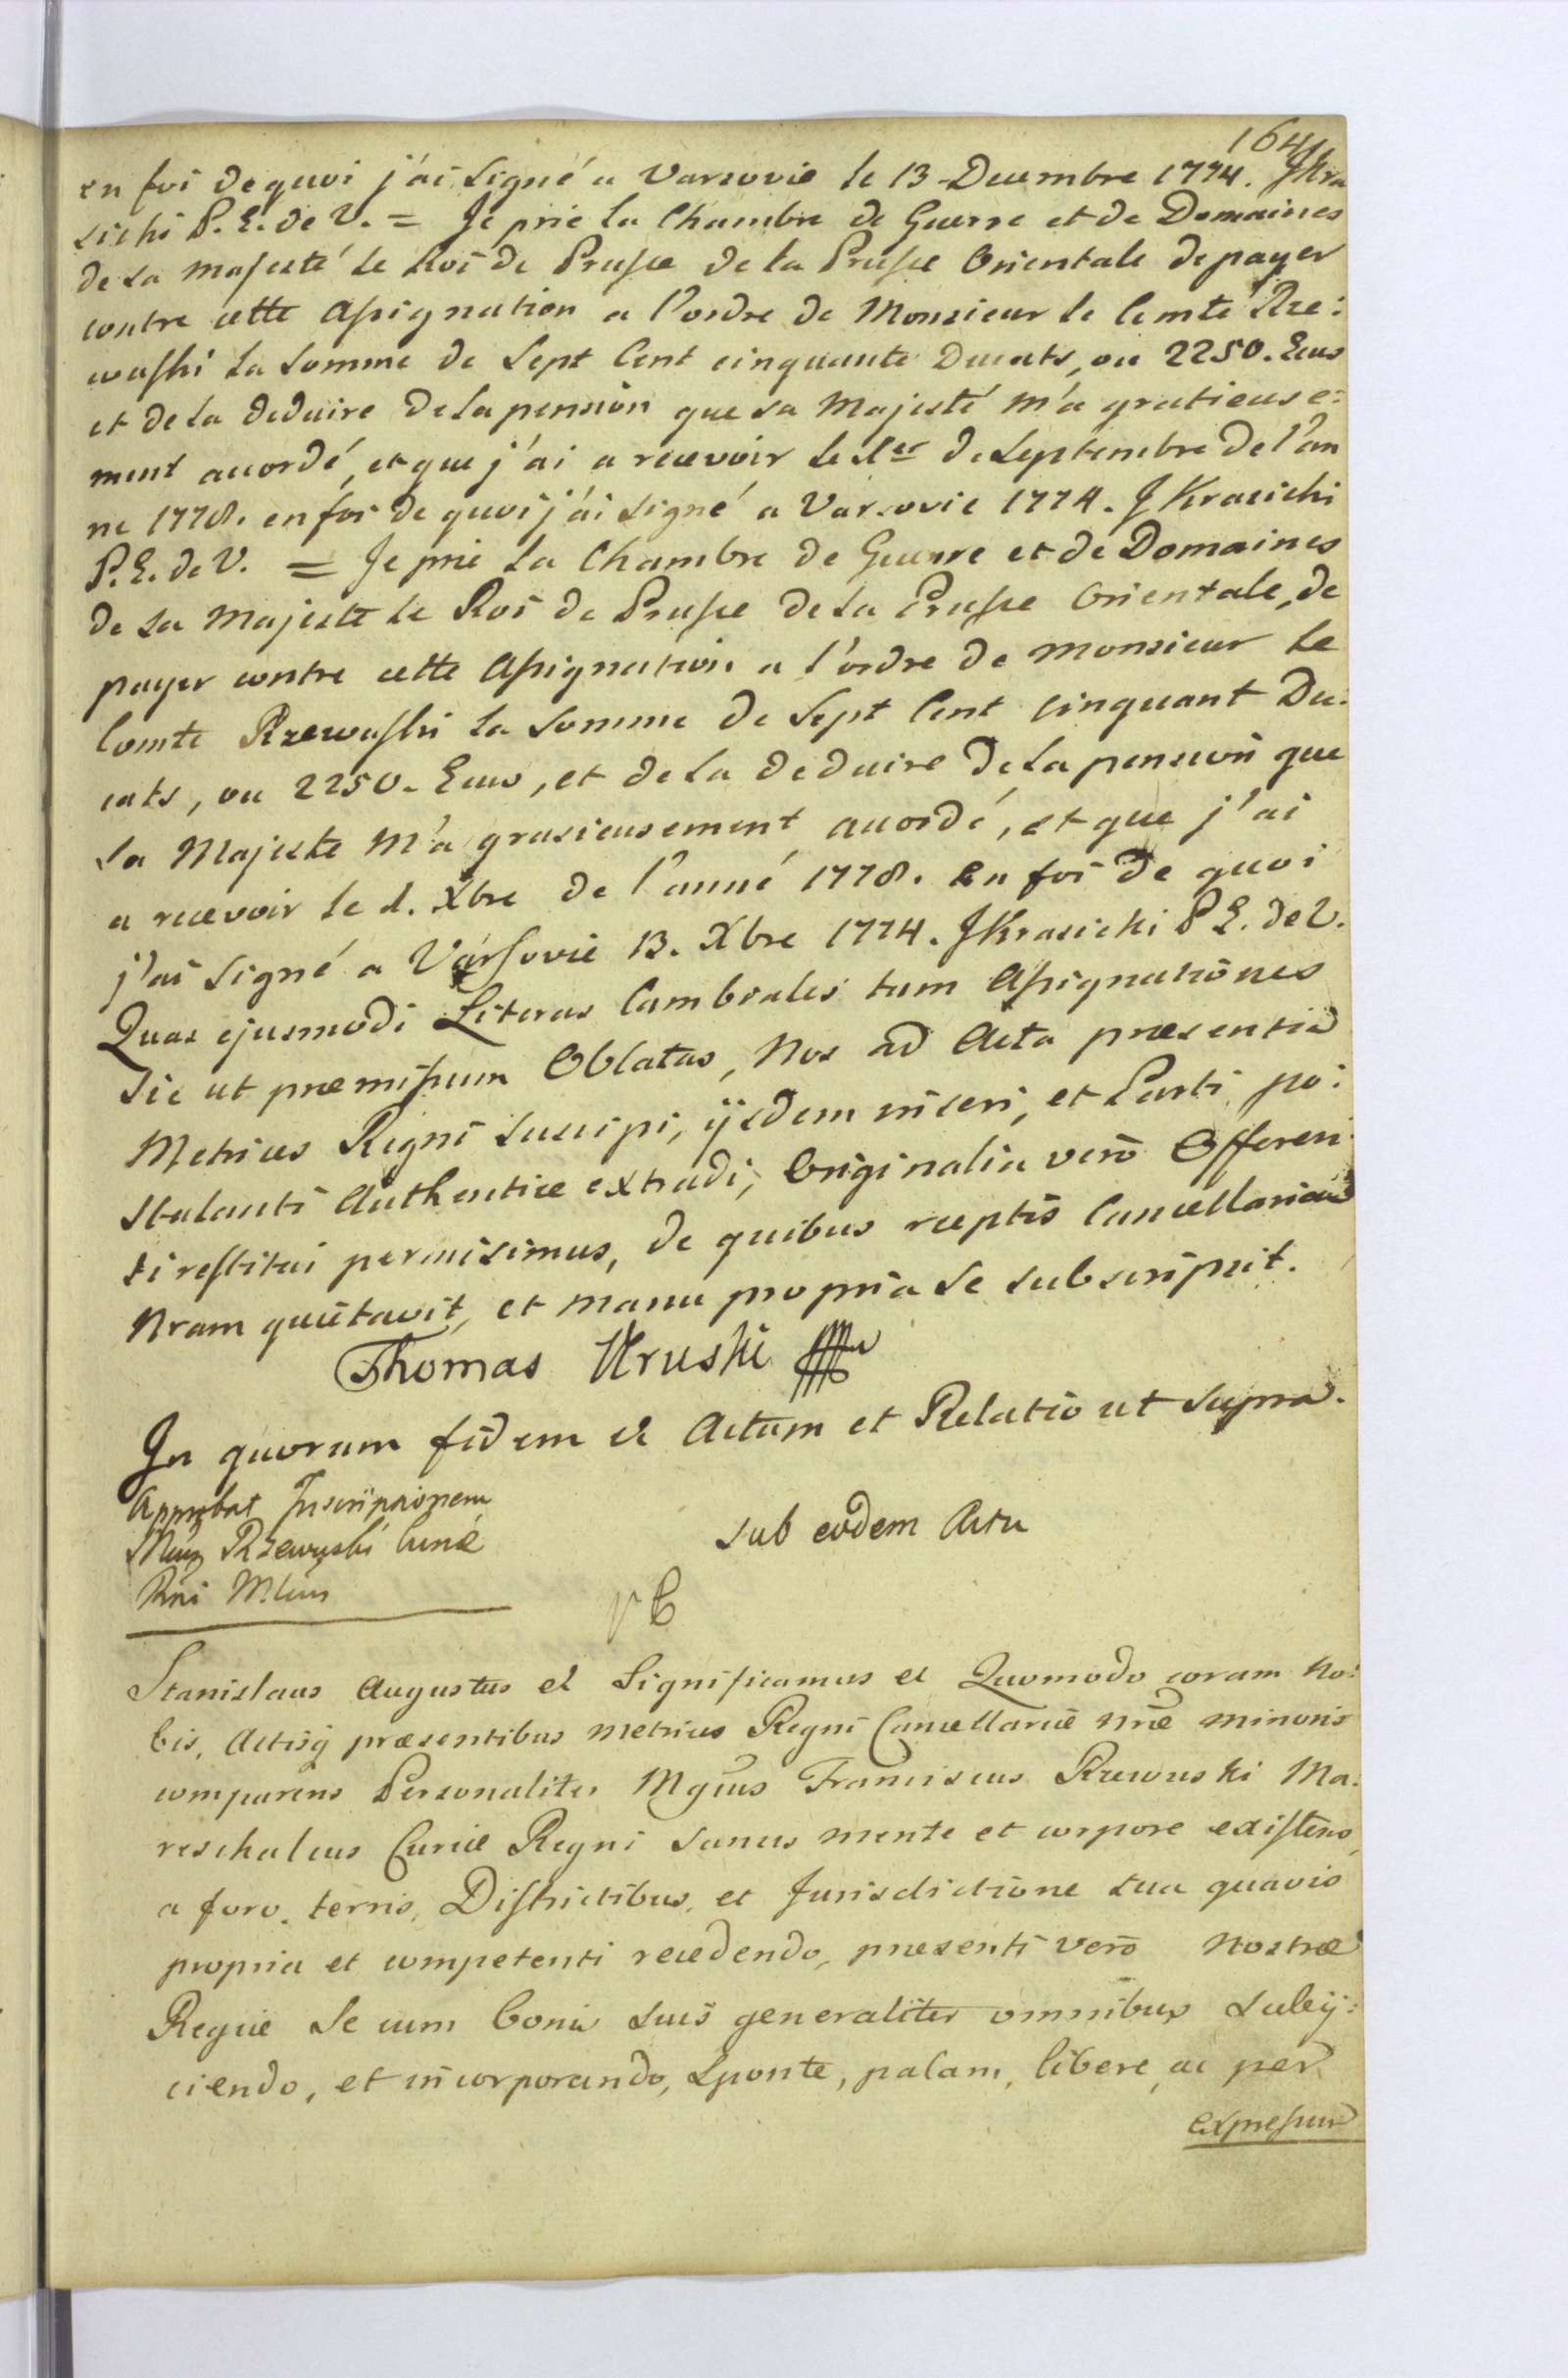 164
en foi de quoi j'ai signé a Varsovie le 13 Decembre 1774. JKra
sicki P. E. de V. = Je prie la Chambre de Guerre et de Domaines
de sa majesté le Roi de Prusse de la Prusse Orientale de payer
contre cette Assignation a l'ordre de Monsieur le Comte Rze:
wuski la Somme de Sept Cent cinquante Ducats, ou 2250. Ecus
et de la deduire de la pension que sa Majesté m'a gratieuse:
ment accordé, et que j'ai a recevoir le 1er de Septembre de l'an
ne 1778. en foi de quoi j'ai signé a Varsovie 1774. J Krasicki
P. E. de V. = Je prie la Chambre de Guerre et de Domaines
de sa Majesté le Roi de Prusse de la Prusse Orientale, de
payer contre cette Assignation a l'ordre de Monsieur le
Comte Rzewuski la Somme de Sept Cent cinquant Du:
cats, ou 2250. Ecus, et de la deduire de la pension que
sa Majeste m'a grasieusement accordé, et que j'ai
a recevoir le 1. Xbre de l'anné 1778. en foi de quoi
j'ai signé a Varsovie 13. Xbre 1774. JKrasicki P E. de V.
Quas ejusmodi Literas Cambiales tum Assignationes
sic ut præmissum Oblatas, Nos ad Acta præsentia
Metrices Regni suscipi, ijsdem inseri, et Parti po:
stulanti Authentice extradi, Originalia verò Offeren
ti restitui permisimus, de quibus receptis Cancellariam
Nram quietavit, et manu propria se subscripsit.
Thomas Uruski
In quorum fidem et Actum et Relatio ut supra.
Approbat Inscriptionem
Rzewuski Curiæ
Rni
sub eodem Actu
Stanislaus Augustus et Significamus et Quomodo coram No:
bis, Actisq præsentibus Metrices Regni Cancellariæ nræ minoris
comparens Personaliter Mgcus Franciscus Rzewuski Ma:
reschalcus Curiæ Regni sanus mente et corpore existens,
a foro, terris, Districtibus, et Jurisdictione sua quavis
propria et competenti recedendo, præsenti verò Nostræ
Regiæ se cum bonis suis generaliter omnibus subij:
ciendo, et incorporando, sponte, palam, libere, ac per
expressum